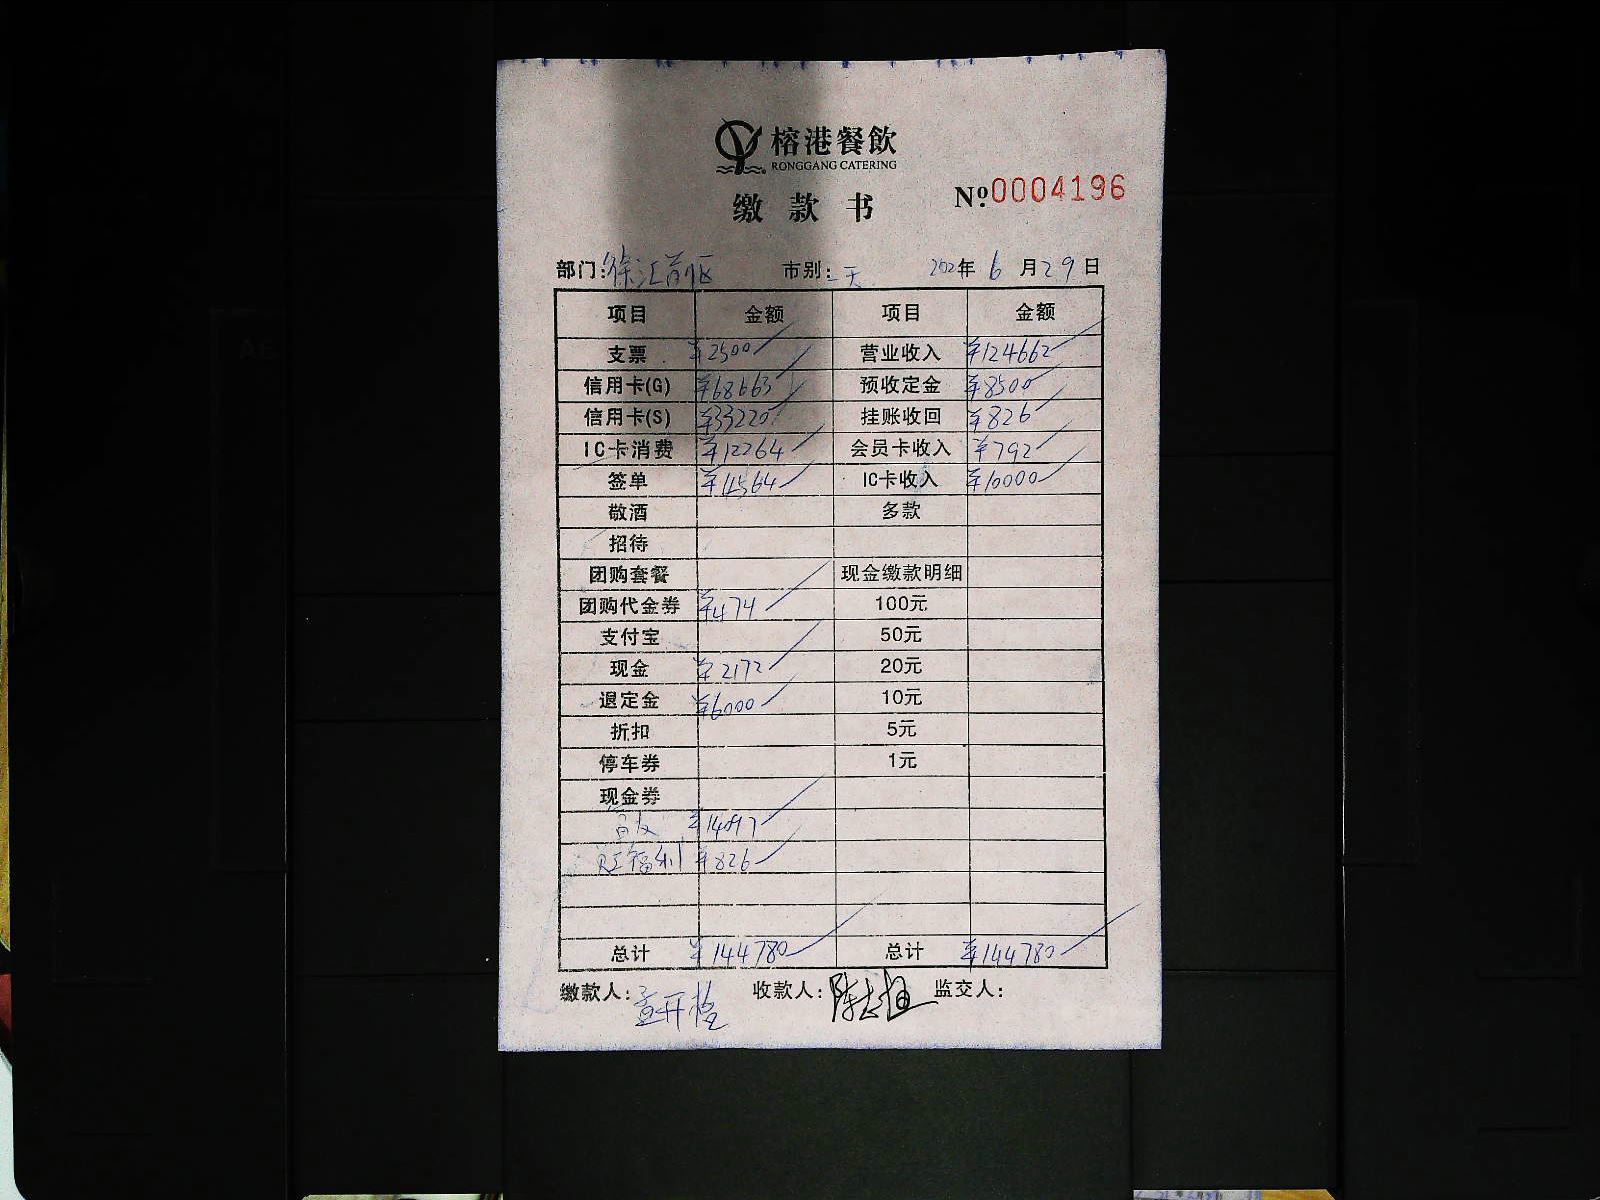 榕港餐飲
RONGGANG CATERING
缴款书
Nº.0004196
部门:徐汇 市别:一天 202年6月29日
项目 金额 项目 金额
支票 ¥2500 营业收入 ¥124662
信用卡(G) ¥68663 预收定金 ¥8500
信用卡(S) ¥33220 挂账收回 ¥826
IC卡消费 ¥12264 会员卡收入 ¥792
签单 ¥4564 IC卡收入 ¥10000
敬酒 多款
招待
团购套餐 现金缴款明细
团购代金券 ¥474 100元
支付宝 50元
现金 ¥2172 20元
退定金 ¥6000 10元
折扣 5元
停车券 1元
现金券
¥14097
福利 ¥826
总计 ¥144780 总计 ¥144780
缴款人: 收款人: 监交人: